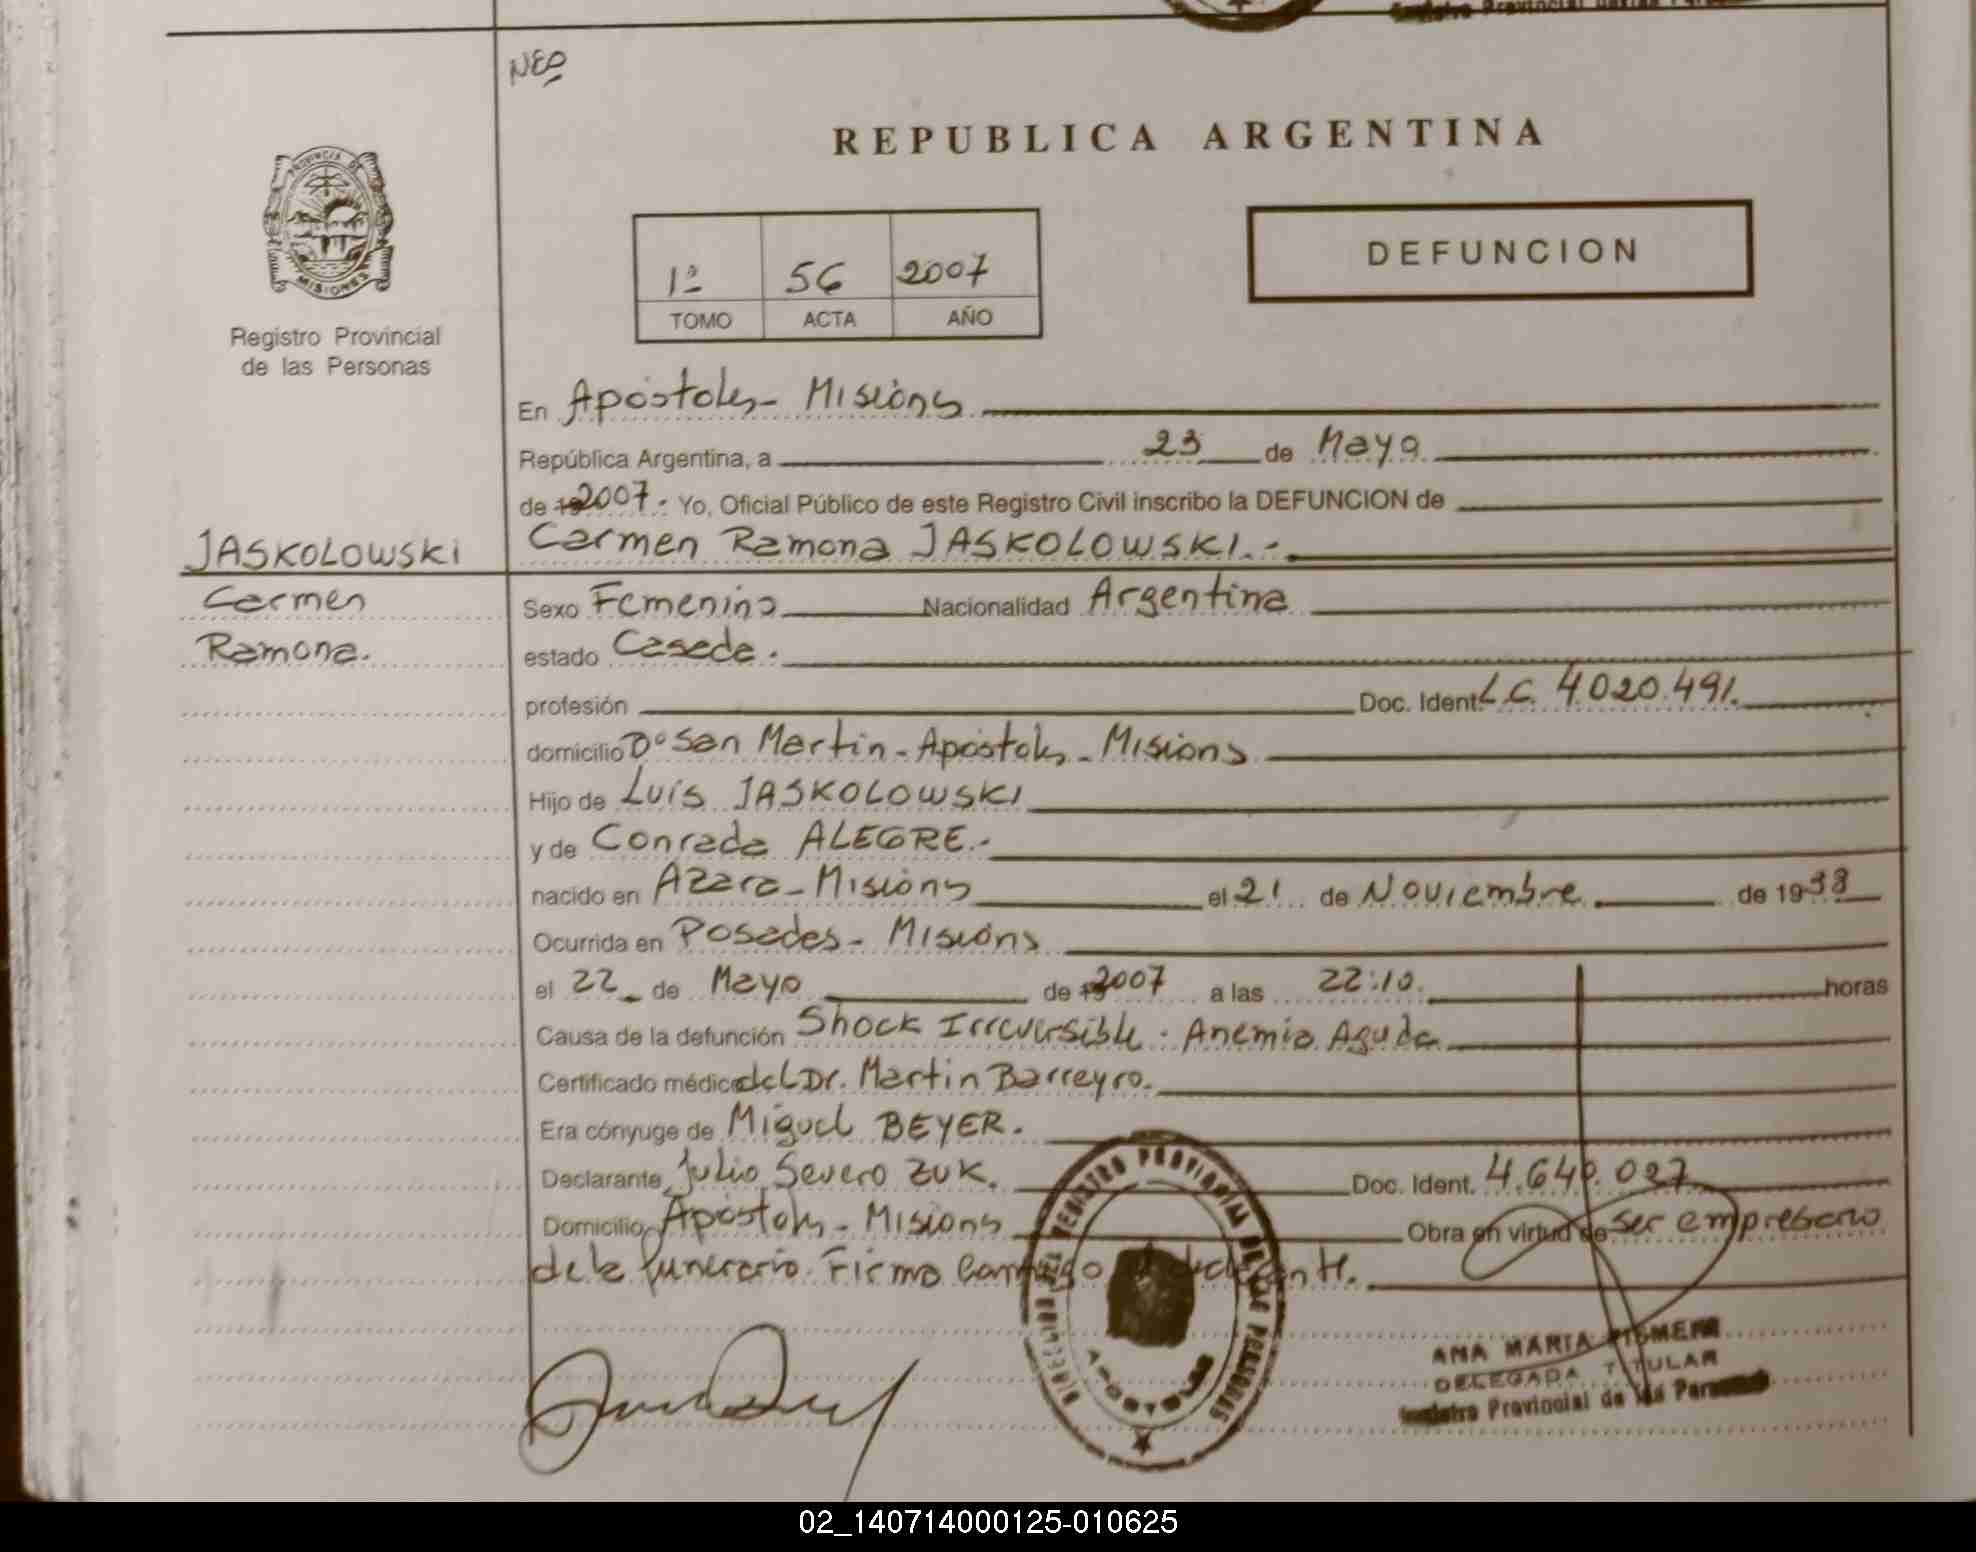 NEO
REPUBLICA ARGENTINA
PROVINCIA DE
MISIONES
Registro Provincial
de las Personas
1º 56 2007
TOMO ACTA AÑO
DEFUNCION
En Apóstoles - Misiones
República Argentina, a 23 de Mayo
de 19 2007.- Yo, Oficial Público de este Registro Civil inscribo la DEFUNCION de
JASKOLOWSKI Carmen Ramona JASKOLOWSKI.-
Carmen Sexo Femenino Nacionalidad Argentina
Ramona. estado Casada.
profesión Doc. Ident. L.C. 4.020.491.
domicilio Dº San Martin - Apóstoles - Misiones
Hijo de Luis JASKOLOWSKI
y de Conrada ALEGRE.-
nacido en Azara - Misiones el 21 de Noviembre de 1938
Ocurrida en Posadas - Misiones
el 22 de Mayo de 19 2007 a las 22:10 horas
Causa de la defunción Shock Irreversible. Anemia Aguda
Certificado médico del Dr. Martin Barreyro.
Era cónyuge de Miguel BEYER.
Declarante Julio Severo ZUK. Doc. Ident. 4.640.027
Domicilio Apóstoles - Misiones Obra en virtud de ser empresario
de la funeraria. Firma conmigo el declarante.
REGISTRO PROVINCIAL DE LAS PERSONAS
APOSTOLES
ANA MARIA
DELEGADA TITULAR
Registro Provincial de las Personas
02_140714000125-010625